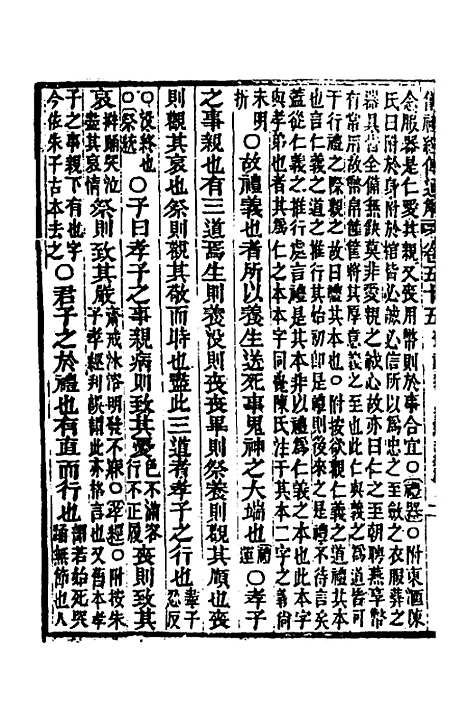 儀禮經傳通解 卷五十五
念服器是仁愛其親又喪用幣則於事合宜○禮器○附東滙陳
氏曰附於身附於棺皆必誠必信所以為忠之至斂之衣服葬之
器具皆全備無缺莫非愛親之誠心故亦曰仁之至朝聘燕享幣
有常用故幣帛篚筐將其厚意義之至也此仁與義之為道皆可
于行禮之際觀之故曰禮其本也○附按欲觀仁義之道禮其本
也言仁義之道之推行其始初卽是禮則後來之是禮不待言矣
蓋從仁義之推行處言禮是其本非以禮為仁義之本也此本字
與孝弟也者其爲仁之本本字同陳氏注于其本二字之義尚
未明析○故禮義也者所以養生送死事鬼神之大端也禮運○孝子
之事親也有三道焉生則養沒則喪喪畢則祭養則觀其順也喪
則觀其哀也祭則觀其敬而時也盡此三道者孝子之行也
○沒終也○祭統○子曰孝子之事親病則致其憂色不滿容行不正履喪則致其
哀擗踊哭泣盡其哀情祭則致其嚴齋戒沐浴明發不寐○孝經○附按朱子孝經刊誤謂此亦格言也又舊本孝
子之事親下有也字今依朱子古本去之○君子之於禮也有直而行也謂若始死哭踊無節也人